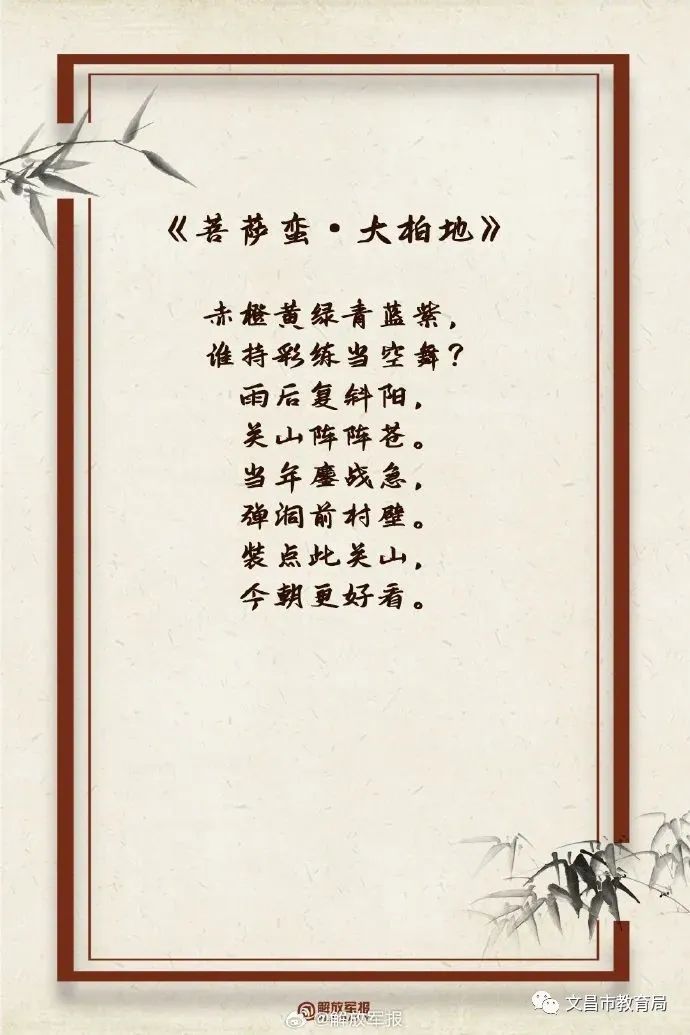 《菩萨蛮·大柏地》
赤橙黄绿青蓝紫，
谁持彩练当空舞？
雨后复斜阳，
关山阵阵苍。
当年鏖战急，
弹洞前村壁。
装点此关山，
今朝更好看。
@解放军报
@解放军报
文昌市教育局